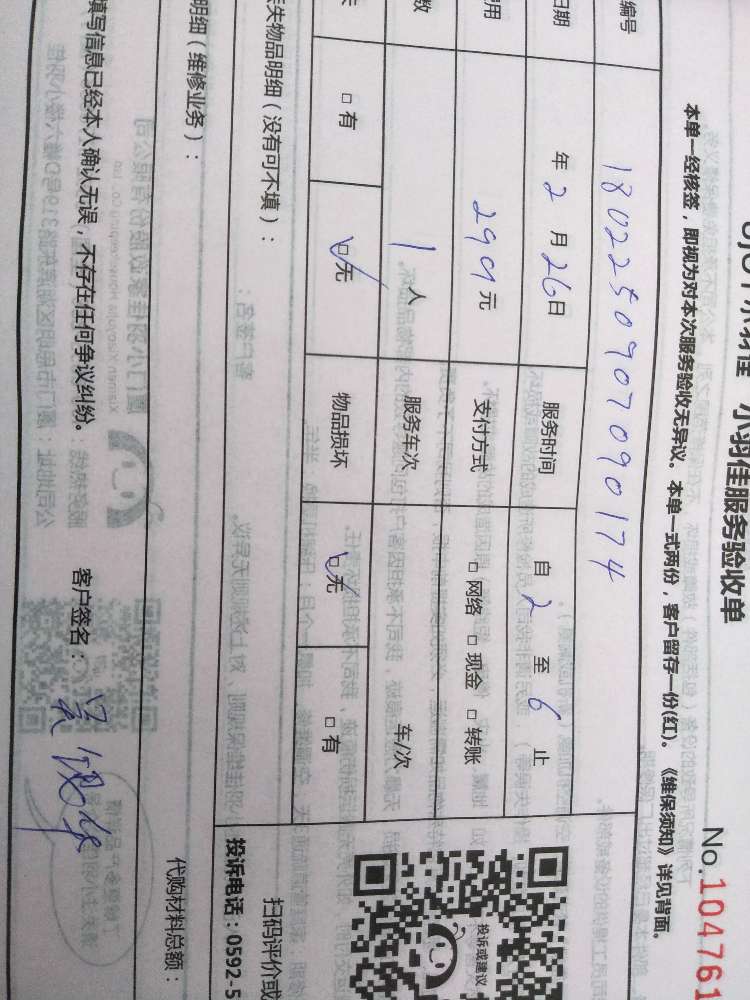 小羽佳服务验收单
No.104761
本单一经核签，即视为对本次服务验收无异议。本单一式两份，客户留存一份(红)。《维保须知》详见背面。
编号 1802250907090174
日期 年 2 月 26 日 服务时间 自 2 至 6 止
费用 299 元 支付方式 □ 网络 □ 现金 □ 转账
数 1 人 服务车次 车/次
失 □ 有 ☑ 无 物品损坏 ☑ 无 □ 有
投诉或建议
扫码评价或
投诉电话：0592-5
丢失物品明细（没有可不填）：
明细（维修业务）：
代购材料总额：
填写信息已经本人确认无误，不存在任何争议纠纷。 客户签名：